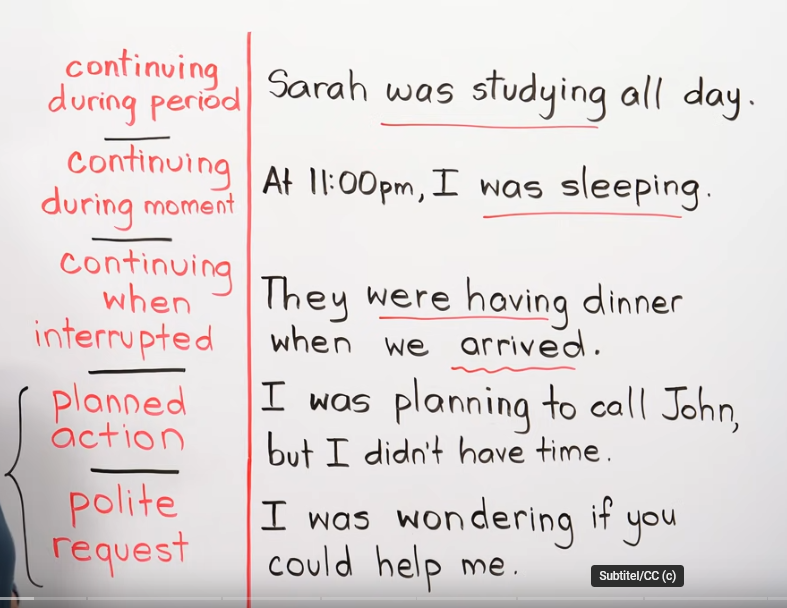 continuing
during period
Sarah was studying all day.
continuing
during moment
At 11:00pm, I was sleeping.
continuing
when
interrupted
They were having dinner
when we arrived.
planned
action
I was planning to call John,
but I didn't have time.
polite
request
I was wondering if you
could help me.
Subtitel/CC (c)